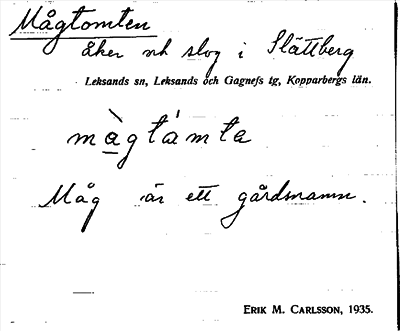 Mågtomten
åker och slog i Slättberg
Leksands sn, Leksands och Gagnefs tg, Kopparbergs län.
màgtámta
Måg är ett gårdsnamn.
ERIK M. CARLSSON, 1935.